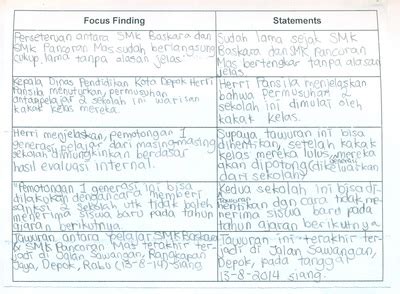 Focus Finding
Statements
Perseteruan antara SMK Baskara dan
SMK Pancoran Mas sudah berlangsung
cukup lama tanpa alasan jelas.
Sudah lama sejak SMK
Baskara dan SMK Pancoran
Mas bertengkar tanpa alasan
jelas.
Kepala Dinas Pendidikan Kota Depok Herri
Pansila menuturkan, permusuhan
antarpelajar 2 sekolah ini warisan
kakak kelas mereka.
Herri Pansila menjelaskan
bahwa permusuhan 2
sekolah ini dimulai oleh
kakak kelas.
Herri menjelaskan, pemotongan 1
generasi pelajar dari masing-masing
sekolah dimungkinkan berdasar
hasil evaluasi internal.
Supaya tawuran ini bisa
dihentikan, setelah kakak
kelas mereka lulus, mereka
akan dipotong generasi (dikeluarkan
dari sekolah)
"Pemotongan 1 generasi ini bisa
dilakukan dengan cara memberi
sanksi 2 sekolah utk tidak boleh
menerima siswa baru pada tahun
ajaran berikutnya
Kedua sekolah ini bisa di-
hentikan tawuran dan cara tidak me-
nerima siswa baru pada
tahun ajaran berikutnya
Tawuran antara pelajar SMK Baskara
& SMK Pancoran Mas terakhir ter-
jadi di Jalan Sawangan, Rangkapan
Jaya, Depok, Rabu (13-8-14) siang.
Tawuran ini terakhir ter-
jadi di Jalan Sawangan,
Depok, pada tanggal
13-8-2014 siang.